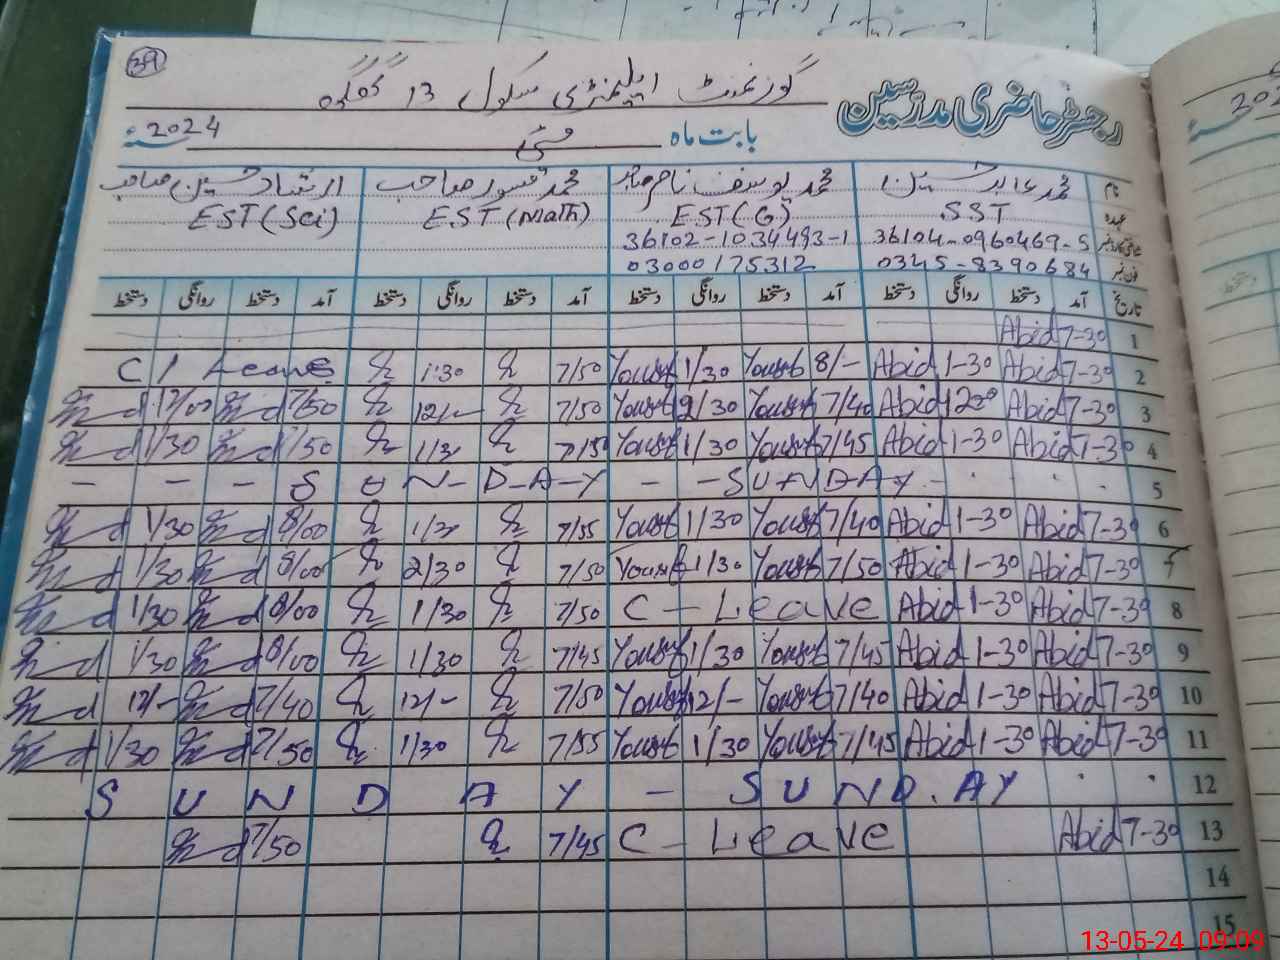 39
گورنمنٹ ایلیمنٹری سکول 13 گگھ
رجسٹر حاضری مدرسین
بابت ماہ مئی 2024
نام محمد عابد حسین محمد یوسف ناصر صابر محمد قیصور صاحب ارشاد حسین صاحب
عہدہ SST EST(G) EST(Math) EST(Sci)
36104-0960469-5 36102-1034493-1
فون نمبر 0345-8390684 03000175312
تاریخ آمد دستخط روانگی دستخط آمد دستخط روانگی دستخط آمد دستخط روانگی دستخط آمد دستخط روانگی دستخط
1 7-30 Abid
2 7-30 Abid 1-30 Abid 8/- Yousuf 1/30 Yousuf 7/50 1:30 C/Leave
3 7-30 Abid 1200 Abid 7/40 Yousuf 12/30 Yousuf 7/50 12/- 7/50 12/00
4 7-30 Abid 1-30 Abid 7/45 Yousuf 1/30 Yousuf 7/50 1/30 7/50 1/30
5 - - - S U N - D - A - Y - - S U N D A Y
6 7-30 Abid 1-30 Abid 7/40 Yousuf 1/30 Yousuf 7/55 1/30 8/00 1/30
7 7-30 Abid 1-30 Abid 7/50 Yousuf 1/30 Yousuf 7/50 2/30 8/00 1/30
8 7-30 Abid 1-30 Abid C - Leave 7/50 1/30 8/00 1/30
9 7-30 Abid 1-30 Abid 7/45 Yousuf 1/30 Yousuf 7/45 1/30 8/00 1/30
10 7-30 Abid 1-30 Abid 7/40 Yousuf 12/- Yousuf 7/50 12/- 7/40 12/-
11 7-30 Abid 1-30 Abid 7/45 Yousuf 1/30 Yousuf 7/55 1/30 7/50 1/30
12 S U N D A Y - S U N D . A Y
13 7-30 Abid C - Leave 7/45 7/50
14
15
13-05-24 09:09